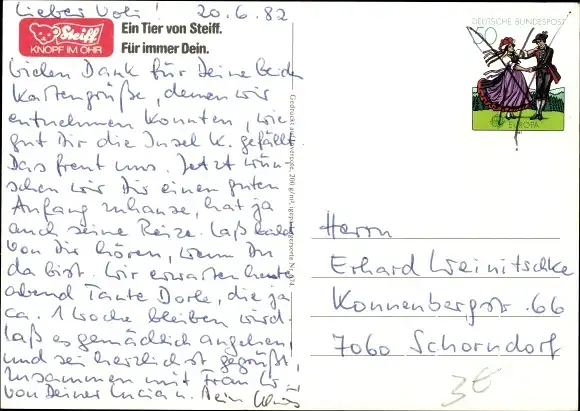 Lieber Voli! 20.6.82
Steiff
KNOPF IM OHR
Ein Tier von Steiff.
Für immer Dein.
Vielen Dank für Deine beiden
Kartengrüße, denen wir
entnehmen konnten, wie
gut Dir die Insel K. gefällt.
Das freut uns. Jetzt wün-
schen wir Dir einen guten
Anfang zuhause, hat ja
auch seine Reize. Laß bald
von Dir hören, wenn Du
da bist. Wir erwarten heute
abend Tante Dorle, die ja
ca. 1 Woche bleiben wird.
Laß es gemächlich angehen
und sei herzlichst gegrüßt,
zusammen mit Frau W.
von Deiner
DEUTSCHE BUNDESPOST
50
EUROPA
Herrn
Erhard Weinitschke
Konnenbergstr. 66
7060 Schorndorf
3€